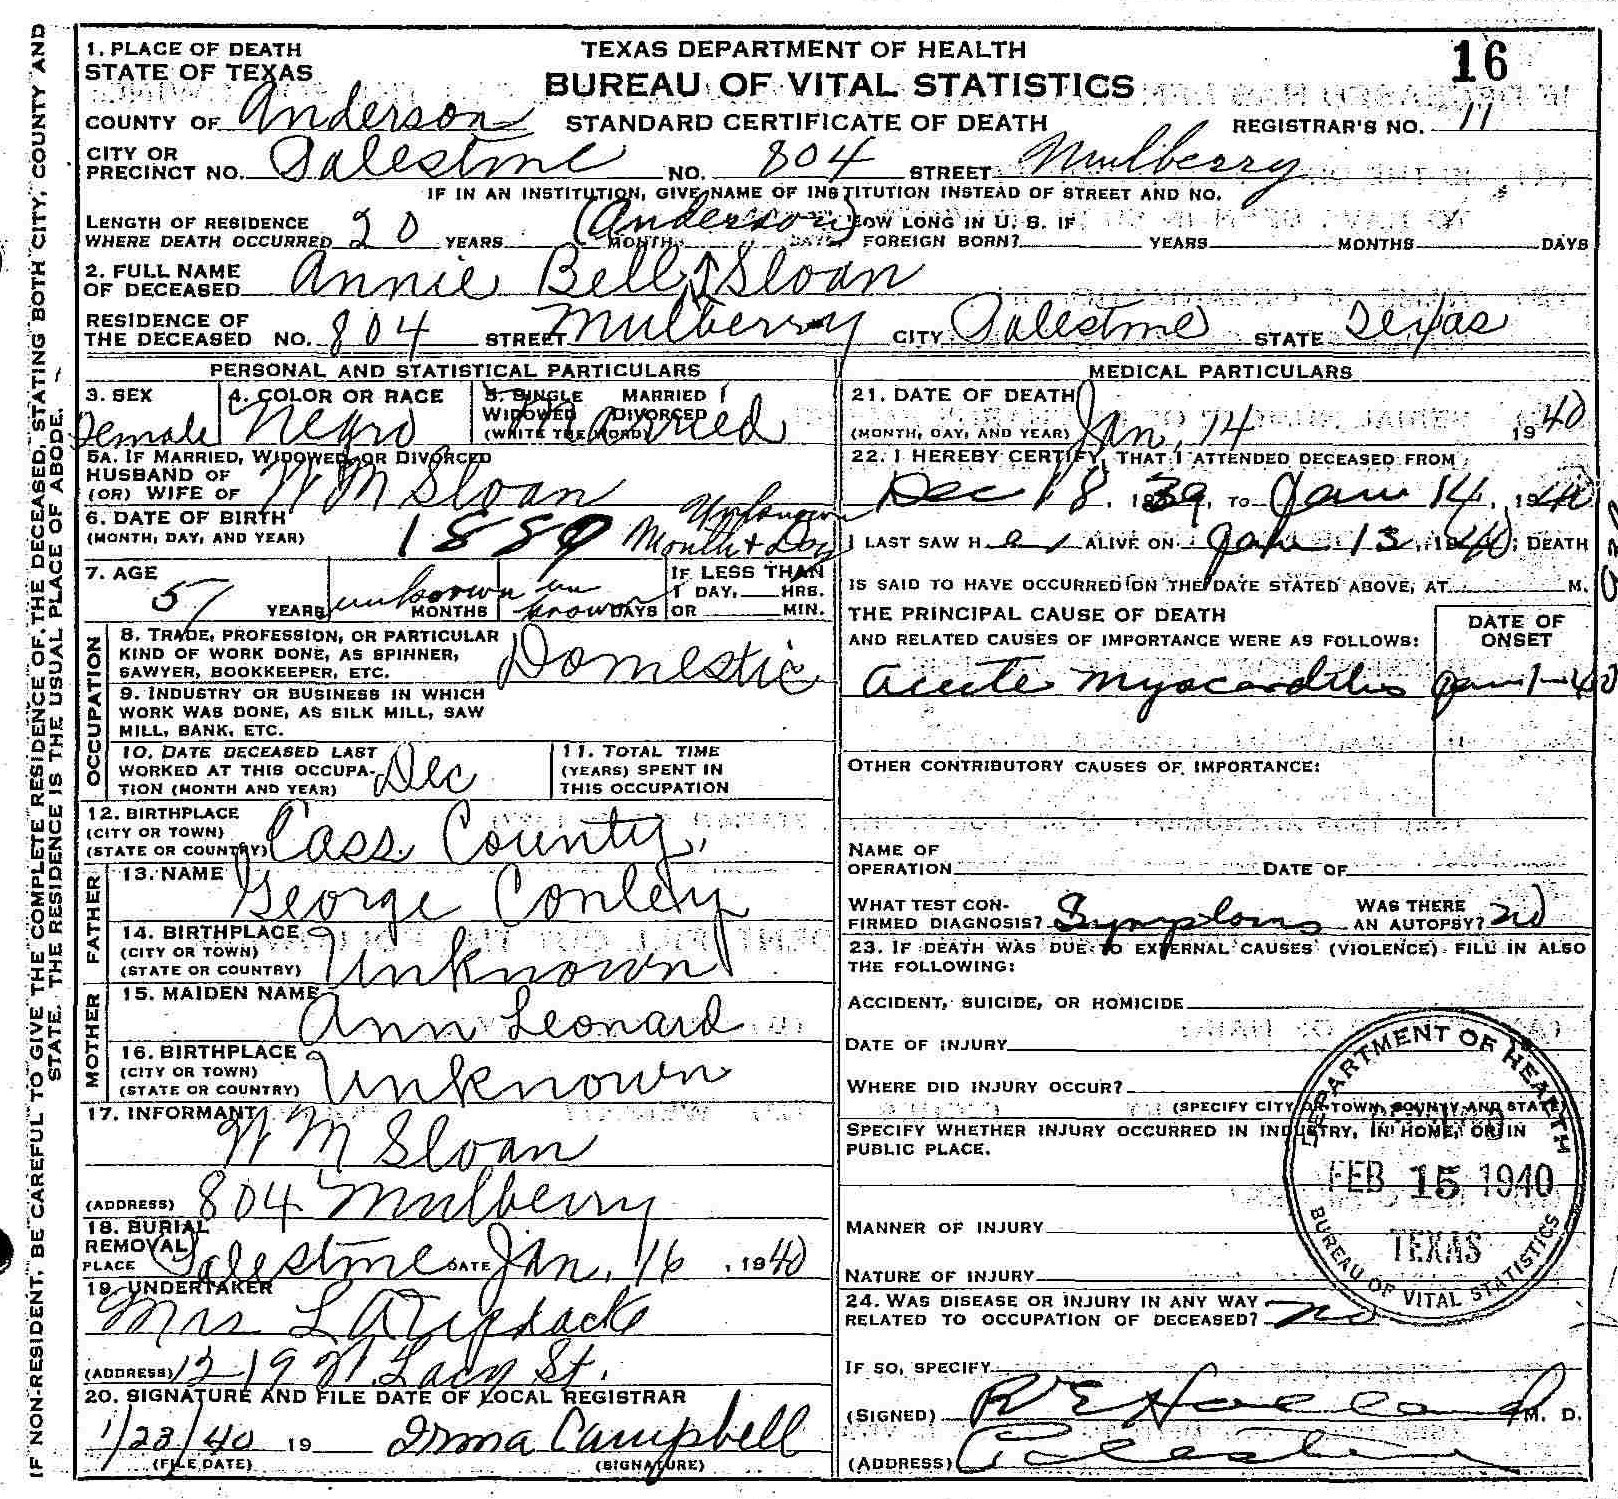 1. PLACE OF DEATH
STATE OF TEXAS
TEXAS DEPARTMENT OF HEALTH
BUREAU OF VITAL STATISTICS
STANDARD CERTIFICATE OF DEATH
16
COUNTY OF Anderson
REGISTRAR'S NO. 11
CITY OR PRECINCT NO. Palestine NO. 804 STREET Mulberry
IF IN AN INSTITUTION, GIVE NAME OF INSTITUTION INSTEAD OF STREET AND NO.
LENGTH OF RESIDENCE WHERE DEATH OCCURRED 20 YEARS MONTHS DAYS
HOW LONG IN U. S. IF FOREIGN BORN? YEARS MONTHS DAYS
(Anderson)
2. FULL NAME OF DECEASED Annie Bell Sloan
RESIDENCE OF THE DECEASED NO. 804 STREET Mulberry CITY Palestine STATE Texas
PERSONAL AND STATISTICAL PARTICULARS
3. SEX Female
4. COLOR OR RACE Negro
5. SINGLE MARRIED WIDOWED DIVORCED (WRITE THE WORD) Married
5A. IF MARRIED, WIDOWED, OR DIVORCED
HUSBAND OF
(OR) WIFE OF W M Sloan
6. DATE OF BIRTH
(MONTH, DAY, AND YEAR) 1889 Unknown Month + Day
7. AGE
51 YEARS unknown MONTHS unknown DAYS
IF LESS THAN 1 DAY, HRS. OR MIN.
OCCUPATION
8. TRADE, PROFESSION, OR PARTICULAR KIND OF WORK DONE, AS SPINNER, SAWYER, BOOKKEEPER, ETC. Domestic
9. INDUSTRY OR BUSINESS IN WHICH WORK WAS DONE, AS SILK MILL, SAW MILL, BANK, ETC.
10. DATE DECEASED LAST WORKED AT THIS OCCUPATION (MONTH AND YEAR) Dec
11. TOTAL TIME (YEARS) SPENT IN THIS OCCUPATION
12. BIRTHPLACE
(CITY OR TOWN)
(STATE OR COUNTRY) Cass County,
FATHER
13. NAME George Conley
14. BIRTHPLACE
(CITY OR TOWN)
(STATE OR COUNTRY) Unknown
MOTHER
15. MAIDEN NAME Ann Leonard
16. BIRTHPLACE
(CITY OR TOWN)
(STATE OR COUNTRY) Unknown
17. INFORMANT W M Sloan
(ADDRESS) 804 Mulberry
18. BURIAL REMOVAL
PLACE Palestine DATE Jan. 16, 1940
19. UNDERTAKER
Mrs L A
(ADDRESS) 1219 N. Lacy St.
20. SIGNATURE AND FILE DATE OF LOCAL REGISTRAR
1/23/40 19 Irma Campbell
(FILE DATE) (SIGNATURE)
MEDICAL PARTICULARS
21. DATE OF DEATH
(MONTH, DAY, AND YEAR) Jan. 14 1940
22. I HEREBY CERTIFY, THAT I ATTENDED DECEASED FROM
Dec 18, 1939, TO Jan 14, 1940
I LAST SAW HER ALIVE ON Jan 13, 1940; DEATH
IS SAID TO HAVE OCCURRED ON THE DATE STATED ABOVE, AT M.
THE PRINCIPAL CAUSE OF DEATH
AND RELATED CAUSES OF IMPORTANCE WERE AS FOLLOWS:
DATE OF ONSET
Acute Myocarditis Jan 1-40
OTHER CONTRIBUTORY CAUSES OF IMPORTANCE:
NAME OF OPERATION DATE OF
WHAT TEST CONFIRMED DIAGNOSIS? Symptoms WAS THERE AN AUTOPSY? no
23. IF DEATH WAS DUE TO EXTERNAL CAUSES (VIOLENCE) FILL IN ALSO
THE FOLLOWING:
ACCIDENT, SUICIDE, OR HOMICIDE
DATE OF INJURY
WHERE DID INJURY OCCUR?
(SPECIFY CITY OR TOWN, COUNTY AND STATE)
SPECIFY WHETHER INJURY OCCURRED IN INDUSTRY, IN HOME, OR IN
PUBLIC PLACE.
MANNER OF INJURY
NATURE OF INJURY
DEPARTMENT OF HEALTH
FEB 15 1940
TEXAS
BUREAU OF VITAL STATISTICS
24. WAS DISEASE OR INJURY IN ANY WAY
RELATED TO OCCUPATION OF DECEASED? no
IF SO, SPECIFY
(SIGNED) R E Holland M. D.
(ADDRESS) Palestine
IF NON-RESIDENT, BE CAREFUL TO GIVE THE COMPLETE RESIDENCE OF THE DECEASED, STATING BOTH CITY, COUNTY AND
STATE. THE RESIDENCE IS THE USUAL PLACE OF ABODE.